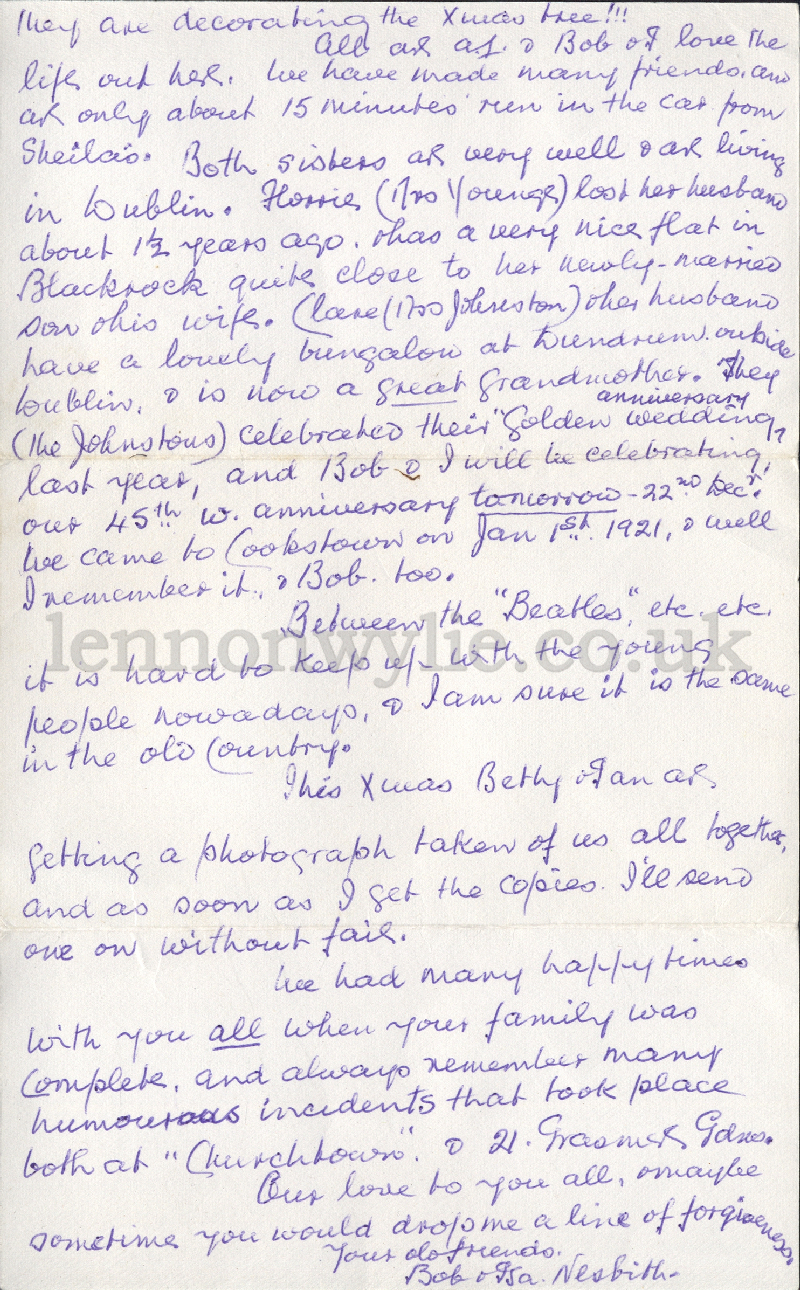 They are decorating the Xmas tree!!!
All at a1. & Bob & I love the
life out her. We have made many friends. and
are only about 15 minutes run in the car from
Sheila's. Both sisters are very well & are living
in Dublin. Florrie (Mrs Younge) lost her husband
about 1½ years ago. & has a very nice flat in
Blackrock quite close to her newly-married
son & his wife. Clare (Mrs Johnston) & her husband
have a lovely bungalow at Dundrum. outside
Dublin. & is now a great grandmother. They
anniversary
(the Johnstons) celebrated their "Golden wedding,
last year, and Bob & I will be celebrating,
our 45th w. anniversary tomorrow - 22nd Decr.
We came to Cookstown on Jan 1st. 1921, & well
I remember it., & Bob. too.
Between the "Beatles", etc. etc.
lennonwylie.co.uk
it is hard to keep up with the young
people nowadays, & I am sure it is the same
in the old Country.
This Xmas Betty & Ian are
getting a photograph taken of us all together,
and as soon as I get the copies. I'll send
one on without fail.
We had many happy times
with you all when your family was
complete, and always remember many
humourous incidents that took place
both at "Churchtown". & 21. Grasmere Gdns.
Our love to you all, & maybe
sometime you would drop me a line of forgiveness.
Your old friends.
Bob & Isa. Nesbitt.